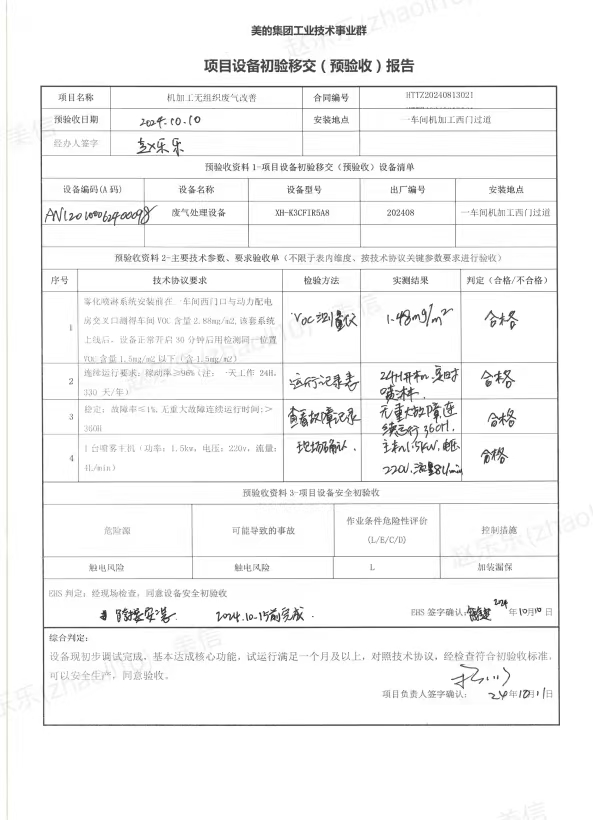 美的集团工业技术事业群
项目设备初验移交（预验收）报告
项目名称 机加工无组织废气改善 合同编号 HTTZ20240813021
预验收日期 2024.10.10 安装地点 一车间机加工西门过道
经办人签字 赵乐乐
预验收资料 1-项目设备初验移交（预验收）设备清单
设备编码(A 码) 设备名称 设备型号 出厂编号 安装地点
废气处理设备 XH-K3CFIR5A8 202408 一车间机加工西门过道
预验收资料 2-主要技术参数、要求验收单（不限于表内维度、按技术协议关键参数要求进行验收）
序号 技术协议要求 检验方法 实测结果 判定（合格/不合格）
1 雾化喷淋系统安装前在一车间西门口与动力配电
房交叉口测得车间 VOC 含量 2.88mg/m2,该套系统
上线后。设备正常开启 30 分钟后用检测同一位置
VOC 含量 1.5mg/m2 以下（含 1.5mg/m2）
VOC测量仪 1.48mg/m² 合格
2 连续运行要求：稼动率≥96%（注：一天工作 24H,
330 天/年）
运行记录表 24H开机,实时
喷淋 合格
3 稳定：故障率≤1%,无重大故障连续运行时间;>
360H
查看故障记录 无重大故障连
续运行360H, 合格
4 1 台喷雾主机（功率：1.5kw，电压：220v，流量：
4L/min）
现场确认. 主机1.5KW,电压
220V,流量8L/min 合格
预验收资料 3-项目设备安全初验收
危险源 可能导致的事故 作业条件危险性评价
(L/E/C/D) 控制措施
触电风险 触电风险 L 加装漏保
EHS 判定：经现场检查，同意设备安全初验收
2024.10.15前完成.
EHS 签字确认： 2024 年10月10日
综合判定：
设备现初步调试完成，基本达成核心功能，试运行满足一个月及以上，对照技术协议，经检查符合初验收标准，
可以安全生产，同意验收。
项目负责人签字确认： 24 年10月11日